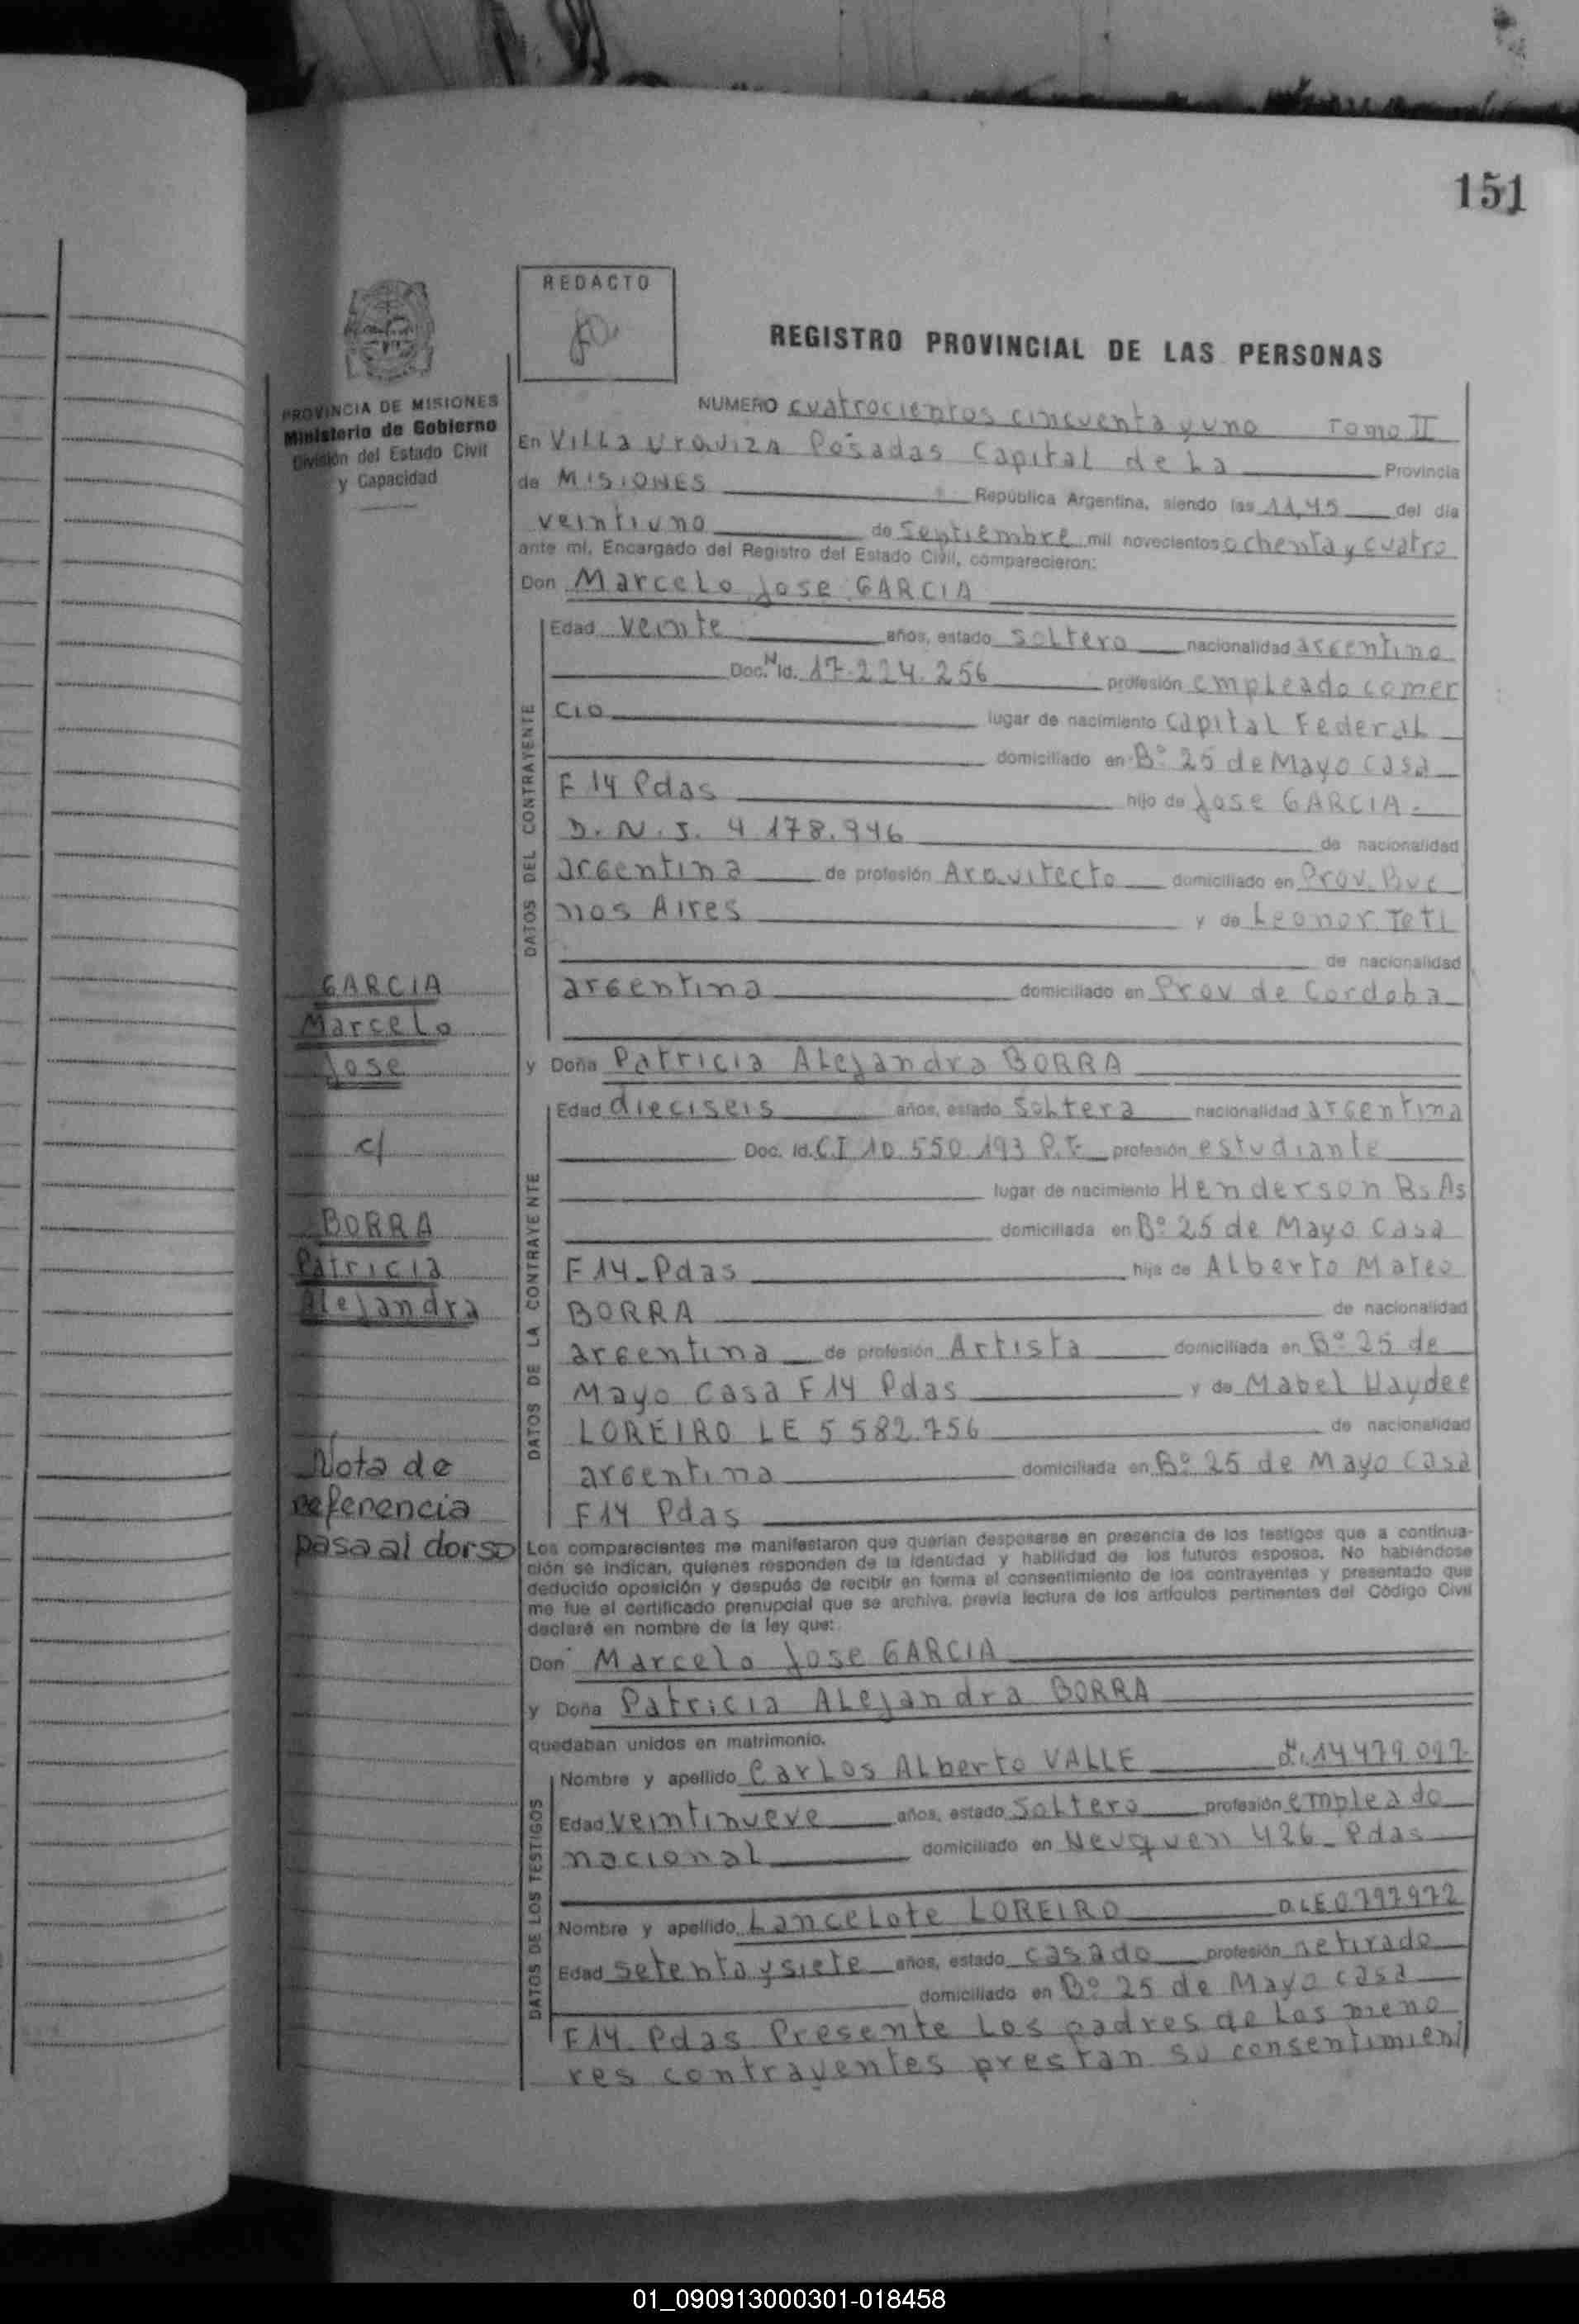 151
REDACTO
REGISTRO PROVINCIAL DE LAS PERSONAS
PROVINCIA DE MISIONES
Ministerio de Gobierno
División del Estado Civil
y Capacidad
NUMERO cuatrocientos cincuenta y uno Tomo II
En Villa Urquiza Posadas Capital de la Provincia
de MISIONES República Argentina, siendo las 11,45 del día
veintiuno de Septiembre mil novecientos ochenta y cuatro
ante mí, Encargado del Registro del Estado Civil, comparecieron:
Don Marcelo Jose GARCIA
DATOS DEL CONTRAYENTE
Edad veinte años, estado soltero nacionalidad argentino
Doc. N Id. 17.224.256 profesión empleado comer
cio lugar de nacimiento Capital Federal
domiciliado en Bº 25 de Mayo casa
F 14 Pdas hijo de Jose GARCIA.
D.N.I. 4 178.946 de nacionalidad
argentina de profesión Arquitecto domiciliado en Prov. Bue
nos Aires y de Leonor Teti
de nacionalidad
argentina domiciliado en Prov de Cordoba
GARCIA
Marcelo
Jose
c/
BORRA
Patricia
Alejandra
Nota de
referencia
pasa al dorso
y Doña Patricia Alejandra BORRA
DATOS DE LA CONTRAYENTE
Edad dieciseis años, estado soltera nacionalidad argentina
Doc. Id. C.I 10.550.193 P.F. profesión estudiante
lugar de nacimiento Henderson Bs As
domiciliada en Bº 25 de Mayo Casa
F 14 Pdas hija de Alberto Mateo
BORRA de nacionalidad
argentina de profesión Artista domiciliada en Bº 25 de
Mayo Casa F 14 Pdas y de Mabel Haydee
LOREIRO LE 5 582.756 de nacionalidad
argentina domiciliada en Bº 25 de Mayo casa
F 14 Pdas
Los comparecientes me manifestaron que querían desposarse en presencia de los testigos que a continua-
ción se indican, quienes responden de la identidad y habilidad de los futuros esposos. No habiéndose
deducido oposición y después de recibir en forma el consentimiento de los contrayentes y presentado que
me fue el certificado prenupcial que se archiva, previa lectura de los artículos pertinentes del Código Civil
declaré en nombre de la ley que:
Don Marcelo Jose GARCIA
y Doña Patricia Alejandra BORRA
quedaban unidos en matrimonio.
DATOS DE LOS TESTIGOS
Nombre y apellido Carlos Alberto VALLE 14479.097
Edad veintinueve años, estado soltero profesión empleado
nacional domiciliado en Neuquen 426 Pdas
Nombre y apellido Lancelote LOREIRO D.LE 0797972
Edad setenta y siete años, estado casado profesión retirado
domiciliado en Bº 25 de Mayo casa
F 14 Pdas Presente los padres de los meno
res contrayentes prestan su consentimient
01_090913000301-018458